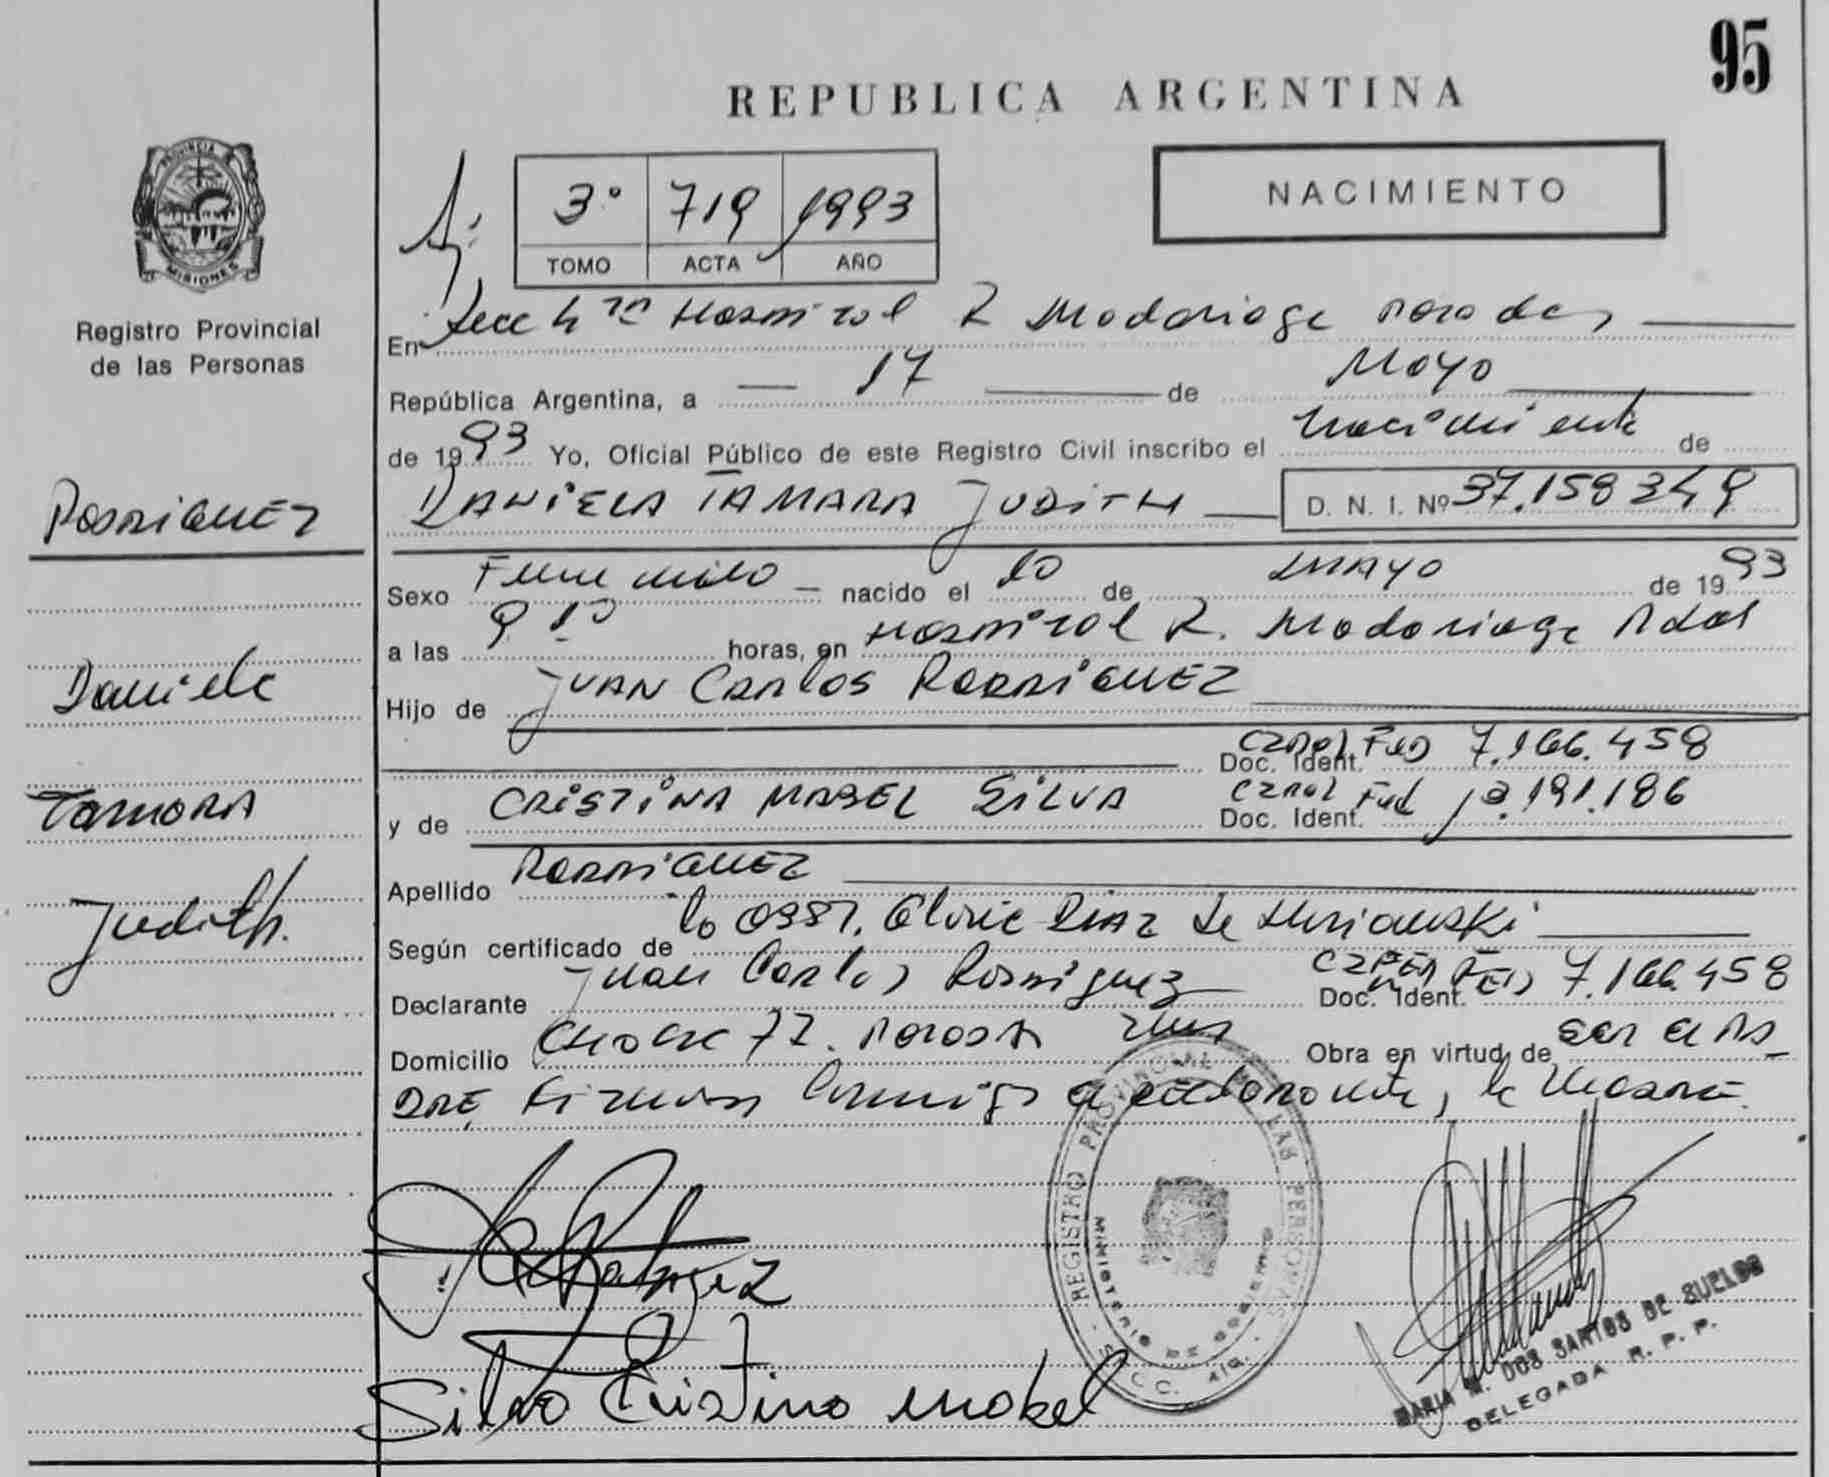 95
REPUBLICA ARGENTINA
NACIMIENTO
3° 719 1993
TOMO ACTA AÑO
PROVINCIA DE MISIONES
Registro Provincial
de las Personas
En Secc Hospital R Madariaga Posadas
República Argentina, a 17 de Mayo
de 1993 Yo, Oficial Público de este Registro Civil inscribo el nacimiento de
DANIELA TAMARA JUDITH D. N. I. Nº 37.158349
RODRIGUEZ
Sexo Femenino nacido el 10 de MAYO de 1993
a las 9.10 horas, en Hospital R. Madariaga Pdas
Hijo de JUAN CARLOS RODRIGUEZ
Daniela
Doc. Ident. Fed 7.166.458
y de CRISTINA MABEL SILVA Doc. Ident. Fed .191.186
Tamara
Apellido RODRIGUEZ
Judith.
Según certificado de Diaz de
Declarante Juan Carlos Rodriguez Doc. Ident. FED 7.166.458
Domicilio 77. Posadas Obra en virtud de ser el PA
DRE, Firman conmigo el declarante, la
REGISTRO PROVINCIAL DE LAS PERSONAS
MINISTERIO DE GOBIERNO
Silva Cristina Mabel
MARIA M. DOS SANTOS DE SUELDO
DELEGADA R. P. P.